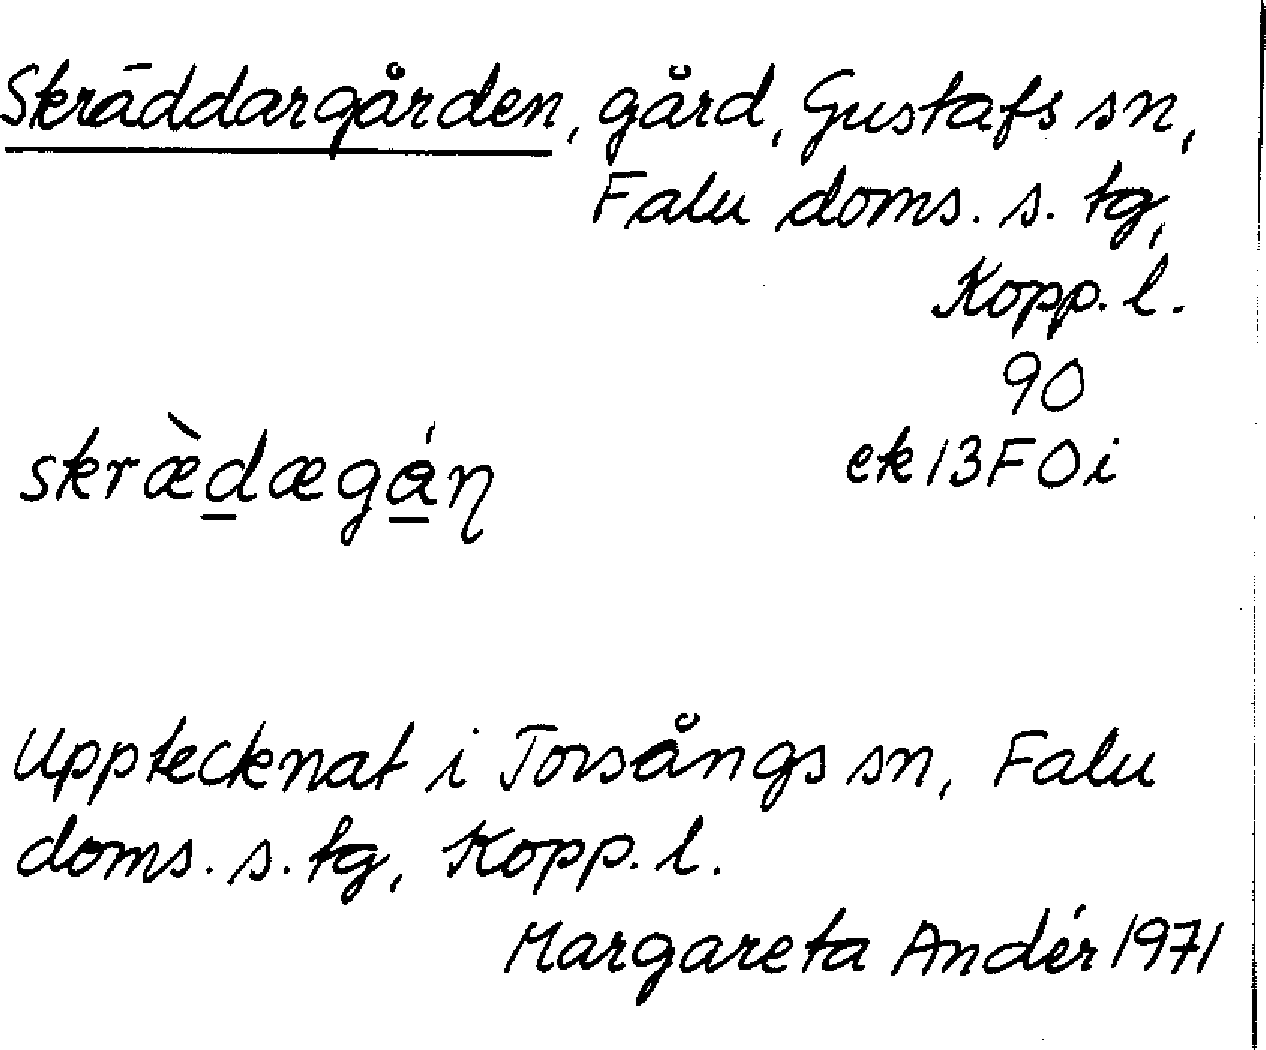 Skräddargården, gård, Gustafs sn,
Falu doms. s. tg,
Kopp. l.
90
ek 13F0i
skræ̀d̲ægá̲ꞃ
Upptecknat i Torsångs sn, Falu
doms. s. tg, Kopp. l.
Margareta Andér 1971